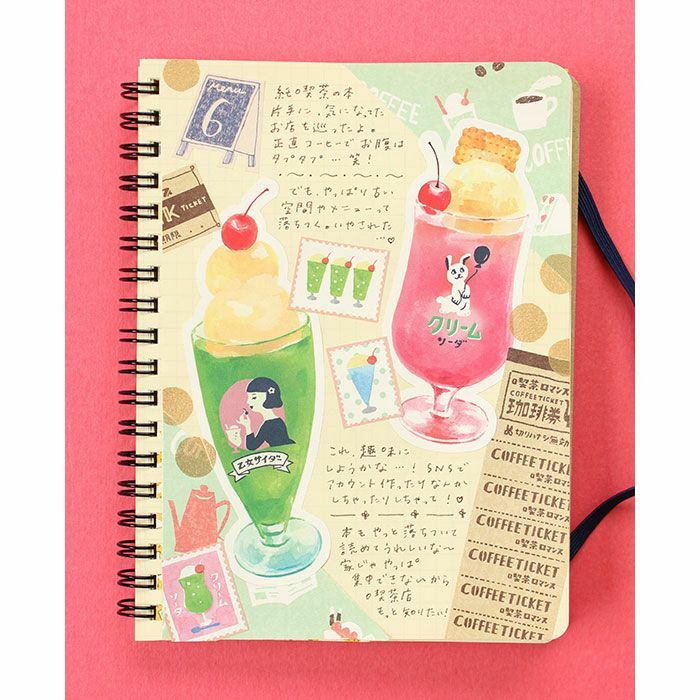 menu
6
純喫茶の本
片手に、気になってた
お店を巡ったよ。
正直コーヒーでお腹は
タプタプ…笑!
でも、やっぱり古い
空間やメニューって
落ちつく。いやされた
…♡
COFFEE
COFF
TICKET
クリーム
ソーダ
乙女サイダー
喫茶ロマンス
COFFEETICKET
珈琲券
切りハナシ無効
COFFEETICKET
喫茶ロマンス
COFFEETICKET
喫茶ロマンス
COFFEETICKET
喫茶ロマンス
COFFEETICKET
喫茶ロマンス
COFFEETICKET
喫茶ロマンス
COFFEETICKET
これ、趣味に
しようかな…! SNSで
アカウント作ったりなんか
しちゃったりしちゃって!♡
本もやっと落ちついて
読めてうれしいな〜
家じゃやっぱ
集中できないから
喫茶店
もっと知りたい!
クリーム
ソーダ